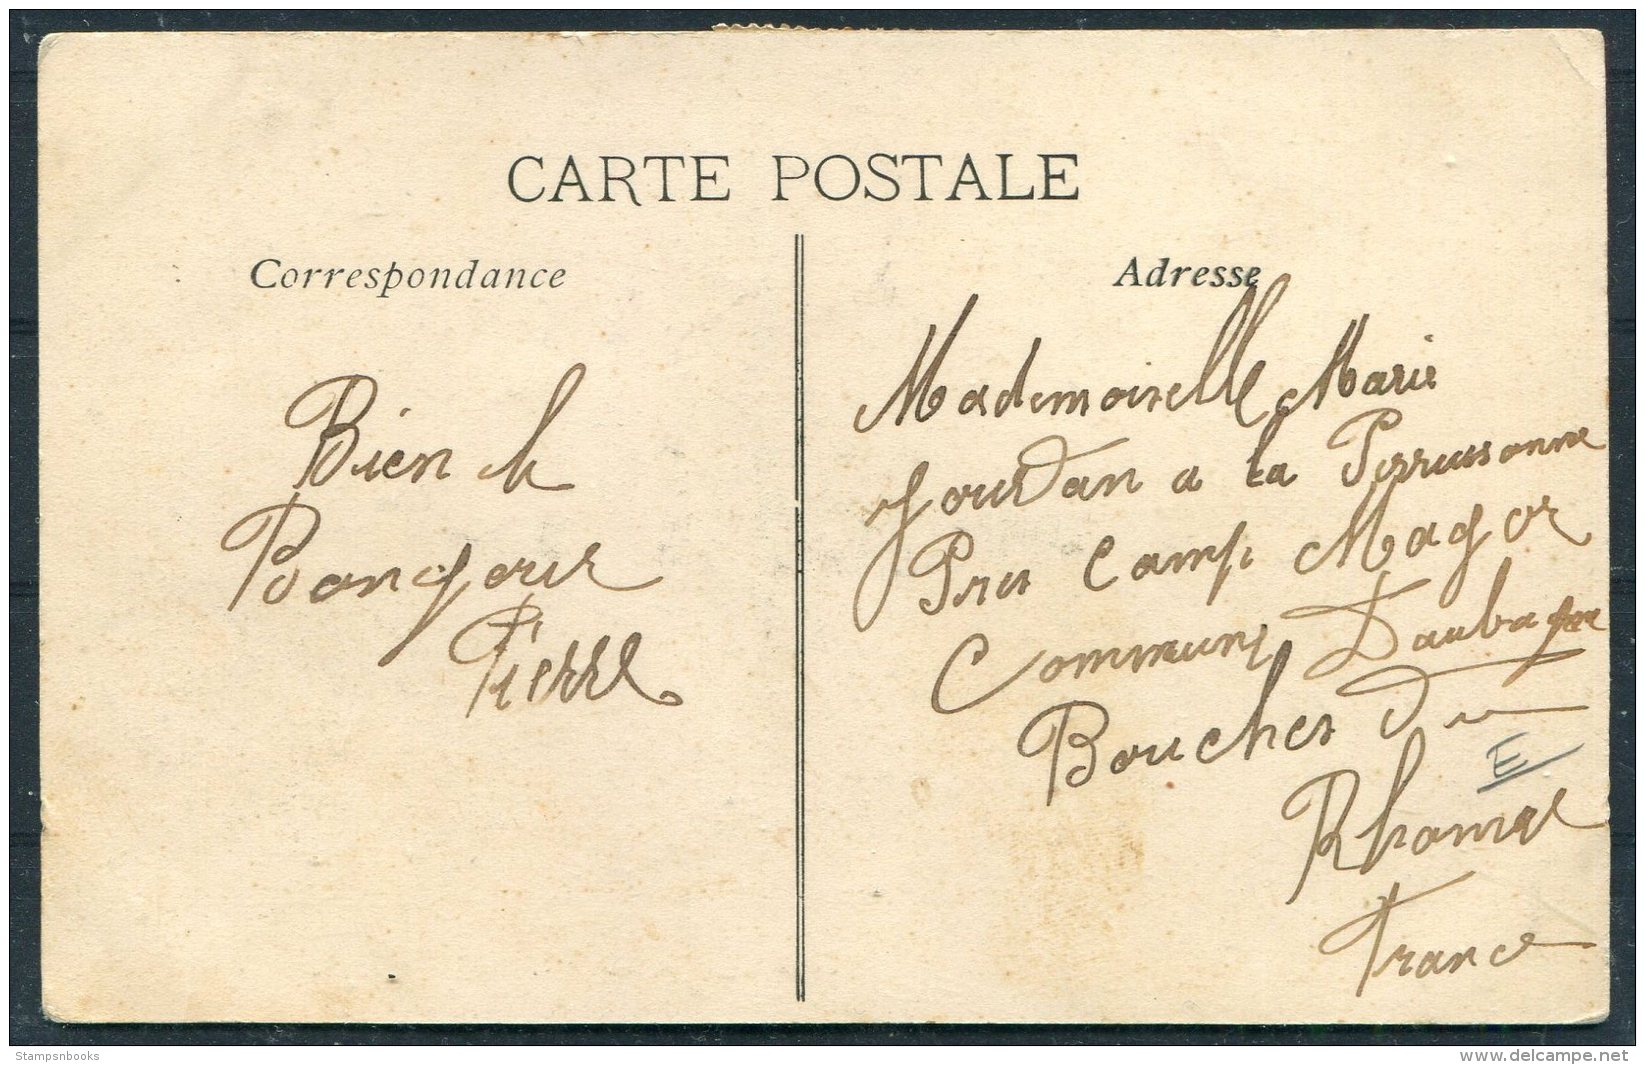 CARTE POSTALE
Correspondance
Bien le
Bonjour
Pierre
Adresse
Mademoiselle Marie
Jourdan a la Perrussonne
Pres Camp Major
Commune Daubagne
Bouches du
E
Rhone
France
Stampsnbooks
www.delcampe.net